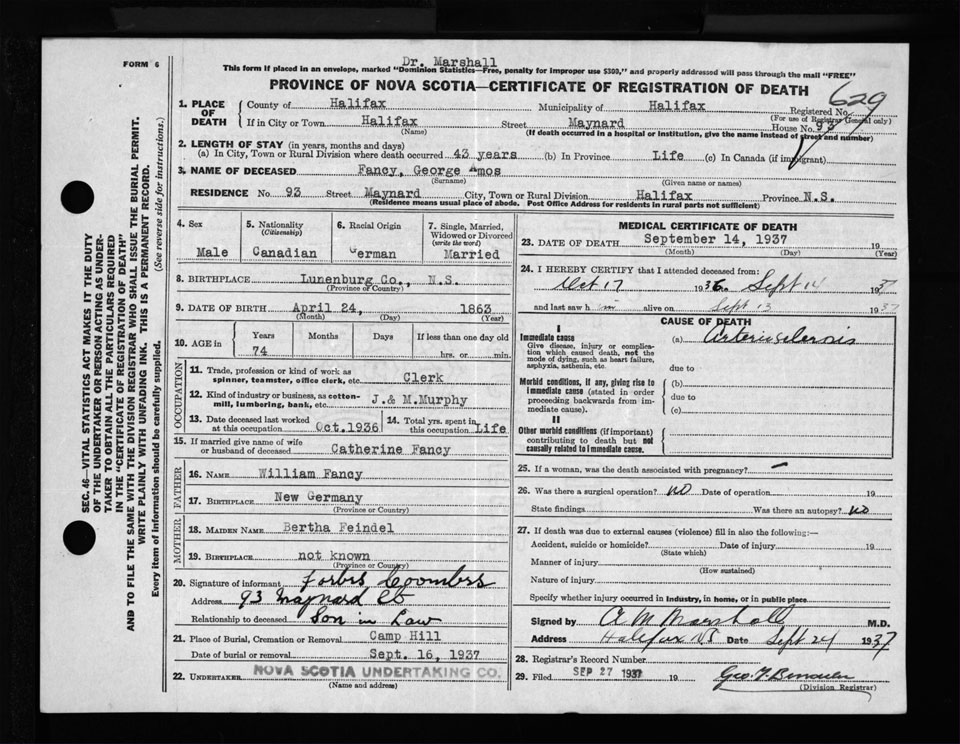 FORM 6
Dr. Marshall
This form if placed in an envelope, marked "Dominion Statistics—Free, penalty for improper use $300," and properly addressed will pass through the mail "FREE"
PROVINCE OF NOVA SCOTIA—CERTIFICATE OF REGISTRATION OF DEATH
629
1. PLACE OF DEATH County of Halifax Municipality of Halifax Registered No.
(For use of Registrar General only)
If in City or Town Halifax Street Maynard House No. 93
(Name) (If death occurred in a hospital or institution, give the name instead of street and number)
2. LENGTH OF STAY (in years, months and days)
(a) In City, Town or Rural Division where death occurred 43 years (b) In Province Life (c) In Canada (if immigrant)
3. NAME OF DECEASED Fancy, George Amos
(Surname) (Given name or names)
RESIDENCE No. 93 Street Maynard City, Town or Rural Division Halifax Province N.S.
(Residence means usual place of abode. Post Office Address for residents in rural parts not sufficient)
4. Sex 5. Nationality (Citizenship) 6. Racial Origin 7. Single, Married, Widowed or Divorced (write the word)
Male Canadian German Married
8. BIRTHPLACE Lunenburg Co., N.S.
(Province or Country)
9. DATE OF BIRTH April 24, 1863
(Month) (Day) (Year)
10. AGE in Years Months Days If less than one day old
74 hrs. or min.
OCCUPATION
11. Trade, profession or kind of work as spinner, teamster, office clerk, etc. Clerk
12. Kind of industry or business, as cotton-mill, lumbering, bank, etc. J. & M. Murphy
13. Date deceased last worked at this occupation Oct. 1936 14. Total yrs. spent in this occupation Life
15. If married give name of wife or husband of deceased Catherine Fancy
FATHER
16. NAME William Fancy
17. BIRTHPLACE New Germany
(Province or Country)
MOTHER
18. MAIDEN NAME Bertha Feindel
19. BIRTHPLACE not known
(Province or Country)
20. Signature of informant Forbes Coombes
Address 93 Maynard St
Relationship to deceased Son in Law
21. Place of Burial, Cremation or Removal Camp Hill
Date of burial or removal Sept. 16, 1937
22. UNDERTAKER NOVA SCOTIA UNDERTAKING CO.
(Name and address)
MEDICAL CERTIFICATE OF DEATH
23. DATE OF DEATH September 14, 1937 19
(Month) (Day) (Year)
24. I HEREBY CERTIFY that I attended deceased from:
Oct 17 1936 Sept 14 1937
and last saw him alive on Sept 13 1937
CAUSE OF DEATH
I
Immediate cause (a) Arteriosclerosis
Give disease, injury or complication which caused death, not the mode of dying, such as heart failure, asphyxia, asthenia, etc.
due to
Morbid conditions, if any, giving rise to immediate cause (stated in order proceeding backwards from immediate cause).
(b)
due to
(c)
II
Other morbid conditions (if important) contributing to death but not causally related to immediate cause.
25. If a woman, was the death associated with pregnancy? —
26. Was there a surgical operation? no Date of operation 19
State findings Was there an autopsy? no
27. If death was due to external causes (violence) fill in also the following:—
Accident, suicide or homicide? Date of injury 19
(State which)
Manner of injury
(How sustained)
Nature of injury
Specify whether injury occurred in industry, in home, or in public place
Signed by A M Marshall M.D.
Address Halifax NS Date Sept 24 1937
28. Registrar's Record Number
29. Filed SEP 27 1937 19
(Division Registrar)
SEC. 46—VITAL STATISTICS ACT MAKES IT THE DUTY
OF THE UNDERTAKER OR PERSON ACTING AS UNDER-
TAKER TO OBTAIN ALL THE PARTICULARS REQUIRED
IN THE "CERTIFICATE OF REGISTRATION OF DEATH"
AND TO FILE THE SAME WITH THE DIVISION REGISTRAR WHO SHALL ISSUE THE BURIAL PERMIT.
WRITE PLAINLY WITH UNFADING INK. THIS IS A PERMANENT RECORD.
Every item of information should be carefully supplied. (See reverse side for instructions.)